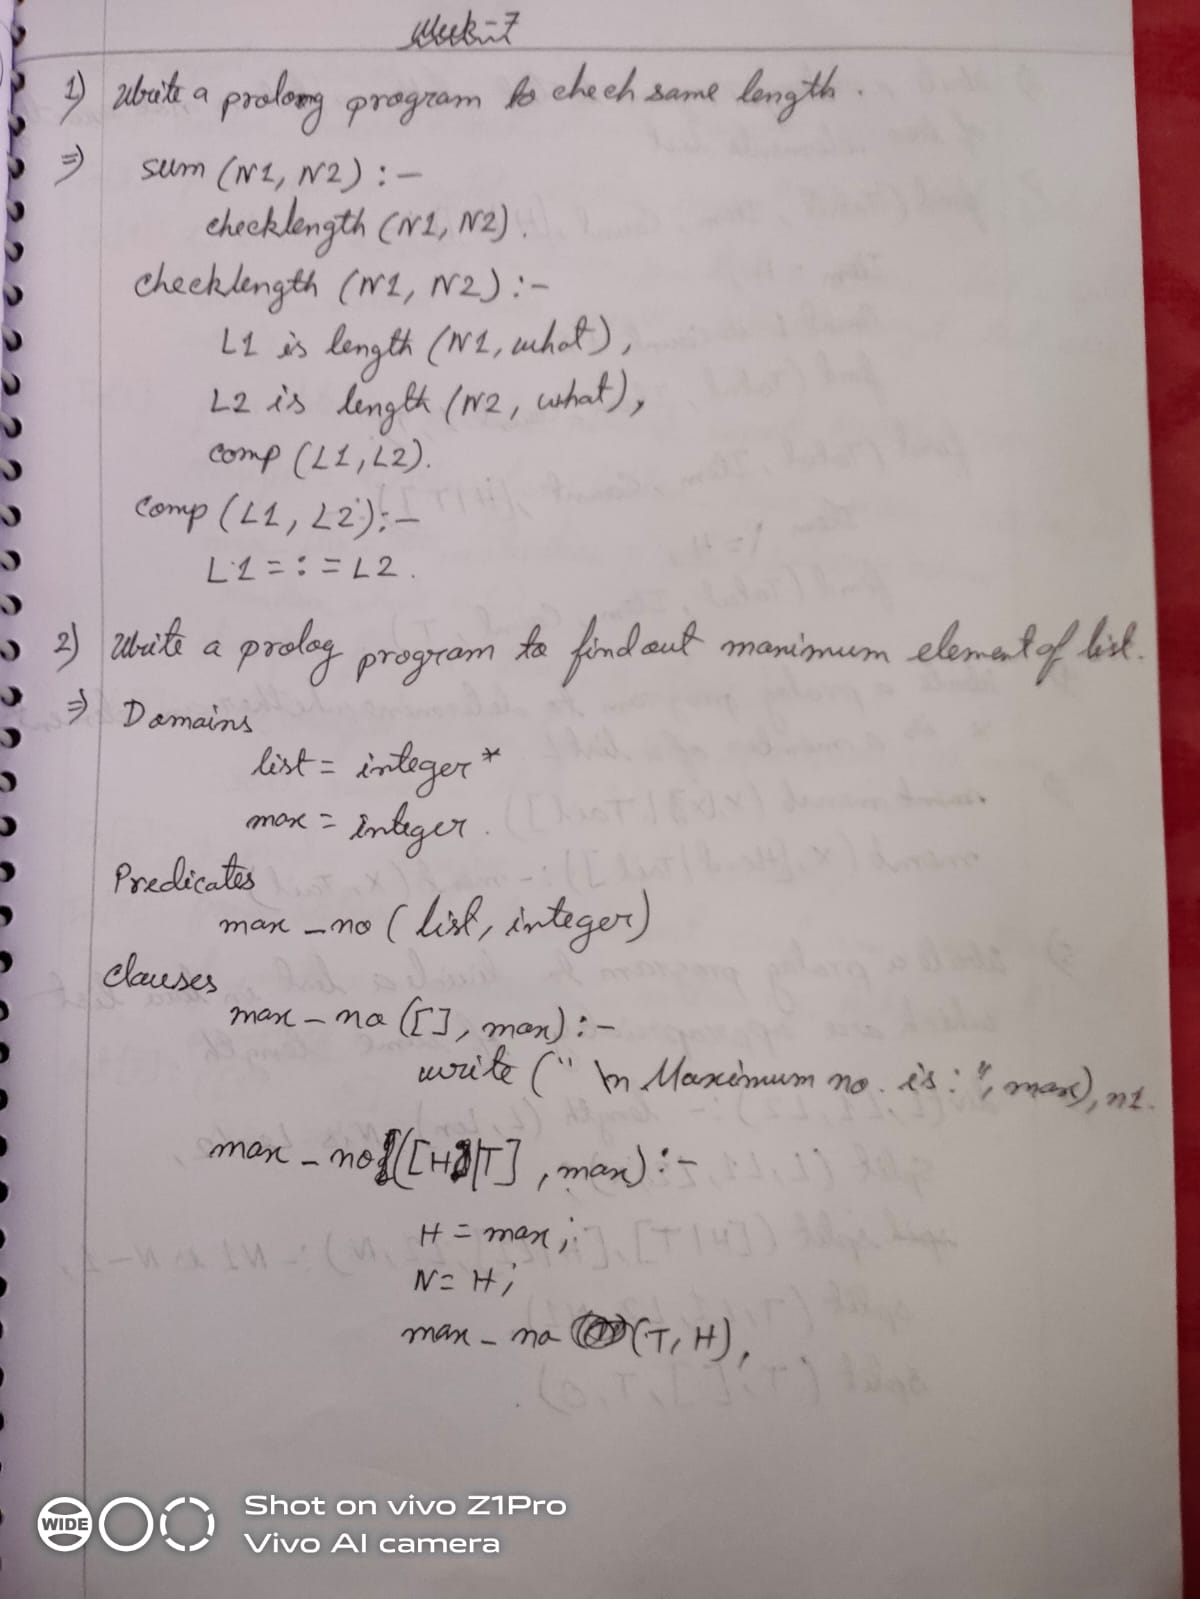 Week-7
1) Write a prolong program to chech same length.
⇒ sum (N1, N2) :-
checklength (N1, N2).
checklength (N1, N2) :-
L1 is length (N1, what),
L2 is length (N2, what),
comp (L1, L2).
comp (L1, L2) :-
L1 =:= L2.
2) Write a prolog program to find out manimum element of list.
⇒ Domains
list = integer*
max = integer.
Predicates
max_no (list, integer)
clauses
max_no ([], max) :-
write ("\n Maximum no. is: ", max), n1.
max_no ([H|T], max) :-
H = max;
N = H;
max_no (T, H),
WIDE
Shot on vivo Z1Pro
Vivo AI camera